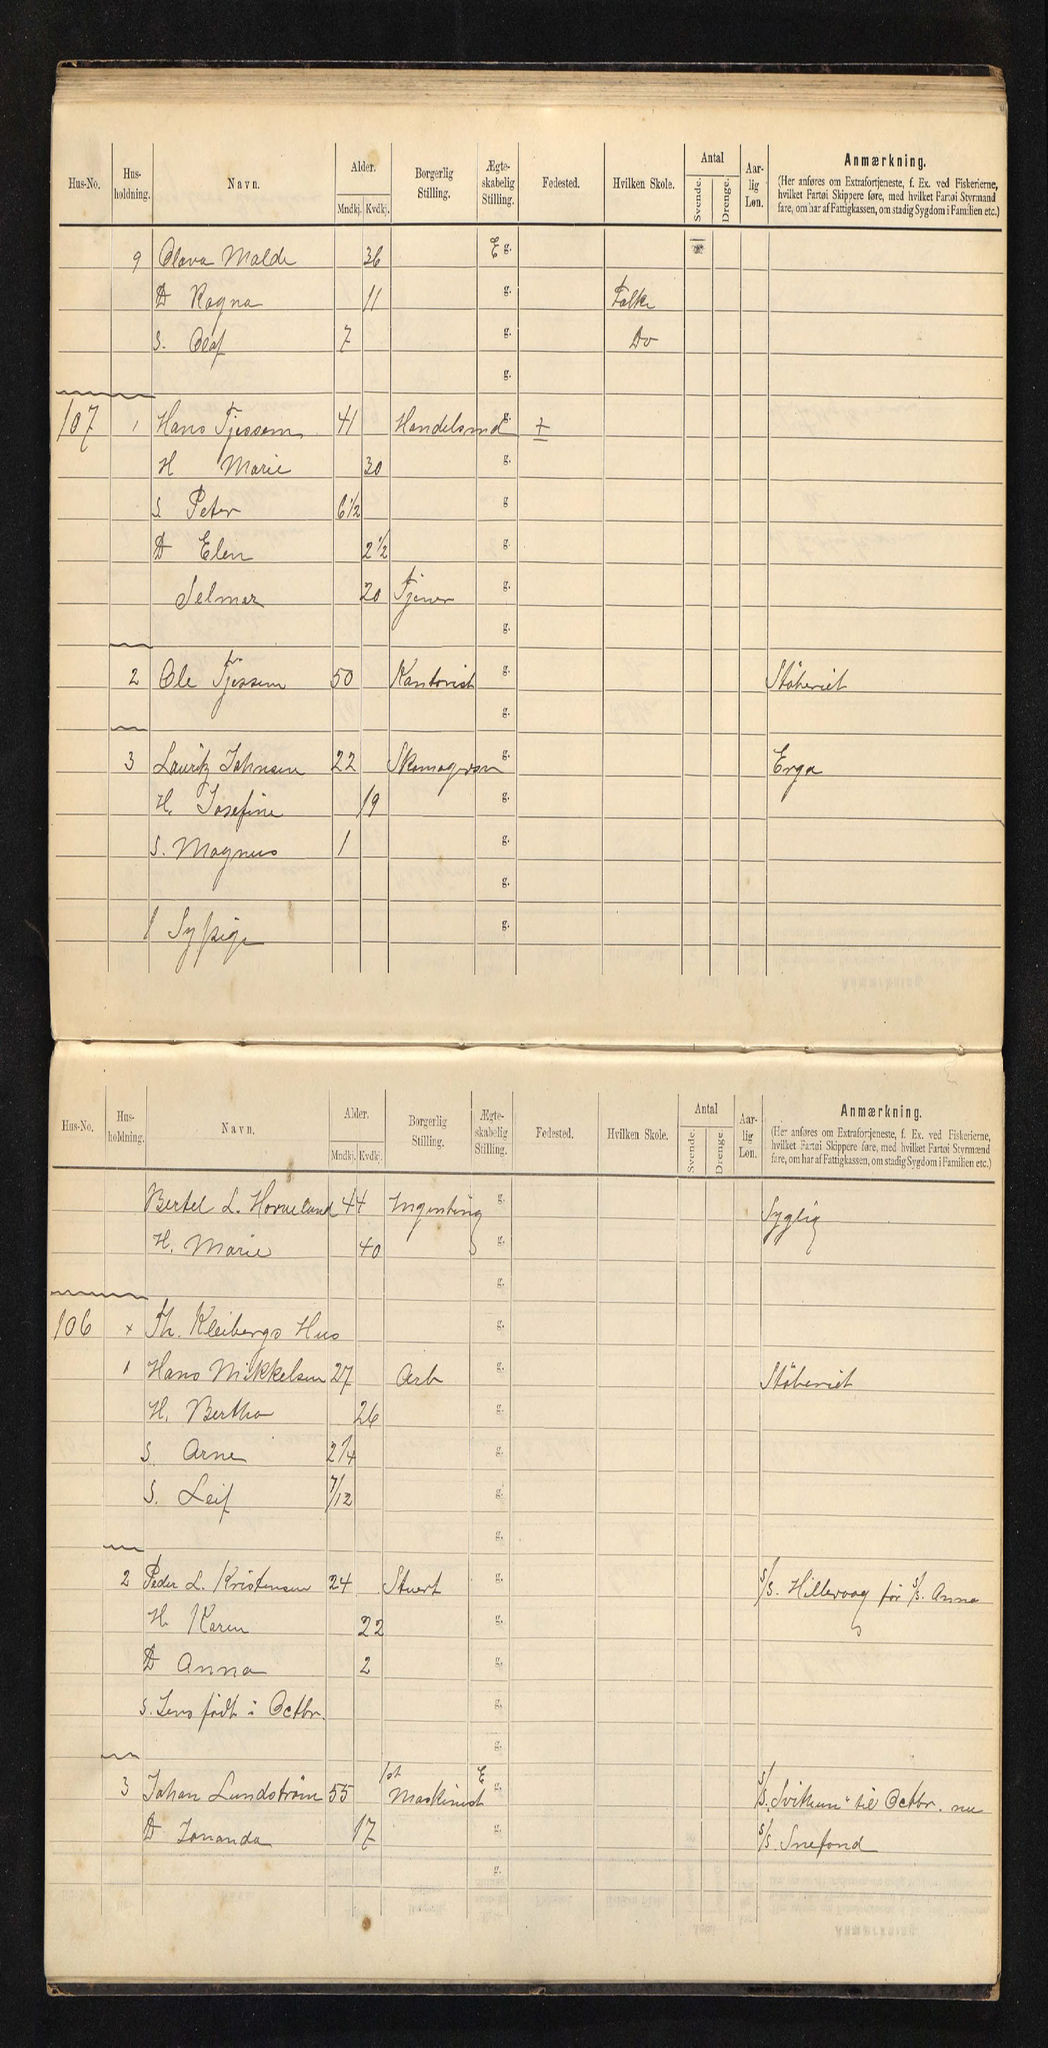 Hus-No. Hus-holdning. Navn. Alder. Mndkj. Kvdkj. Borgerlig Stilling. Ægte-skabelig Stilling. Fødested. Hvilken Skole. Antal Svende. Drenge. Aar-lig Løn. Anmærkning.
(Her anføres om Extrafortjeneste, f. Ex. ved Fiskerierne, hvilket Fartøi Skippere føre, med hvilket Fartøi Styrmand fare, om har af Fattigkassen, om stadig Sygdom i Familien etc.)
9 Olava Malde 36 E g.
D Ragna 11 g. Folke
S. Olaf 7 g. Do
g.
107 1 Hans Tjessem 41 Handelsmd g. +
H Marie 30 g.
S. Peter 6 1/2 g
D Elen 2 1/2 g.
Selmer 20 Tjener g.
g.
2 Ole Tjessem 50 Kontorist g. Støberiet
g.
3 Lauritz Johnsen 22 Skomagersv g. Erga
H. Josefine 19 g.
S. Magnus 1 g.
g.
1 Sypige g.
Hus-No. Hus-holdning. Navn. Alder. Mndkj. Kvdkj. Borgerlig Stilling. Ægte-skabelig Stilling. Fødested. Hvilken Skole. Antal Svende. Drenge. Aar-lig Løn. Anmærkning.
(Her anføres om Extrafortjeneste, f. Ex. ved Fiskerierne, hvilket Fartøi Skippere føre, med hvilket Fartøi Styrmænd fare, om har af Fattigkassen, om stadig Sygdom i Familien etc.)
Bertel L. Hovneland 44 Ingenting g. Syglig
H. Marie 40 g.
g.
106 x Th. Kleibergs Hus g.
1 Hans Mikkelsen 27 Arb g. Støberiet
H. Bertha 26 g.
S. Arne 2 1/4 g.
S. Leif 7/12 g.
g.
2 Peder L. Kristensen 24 Stuert g. S/S. Hillevaag før S/S. Anna
H. Karen 22 g.
D Anna 2 g.
S. Jens født i Octbr. g.
g.
3 Johan Lundstrøm 55 1st Maskinist E g. S/S. "Svithun" til Octbr. nu
D Jonanda 17 g. S/S. Snefond
g.